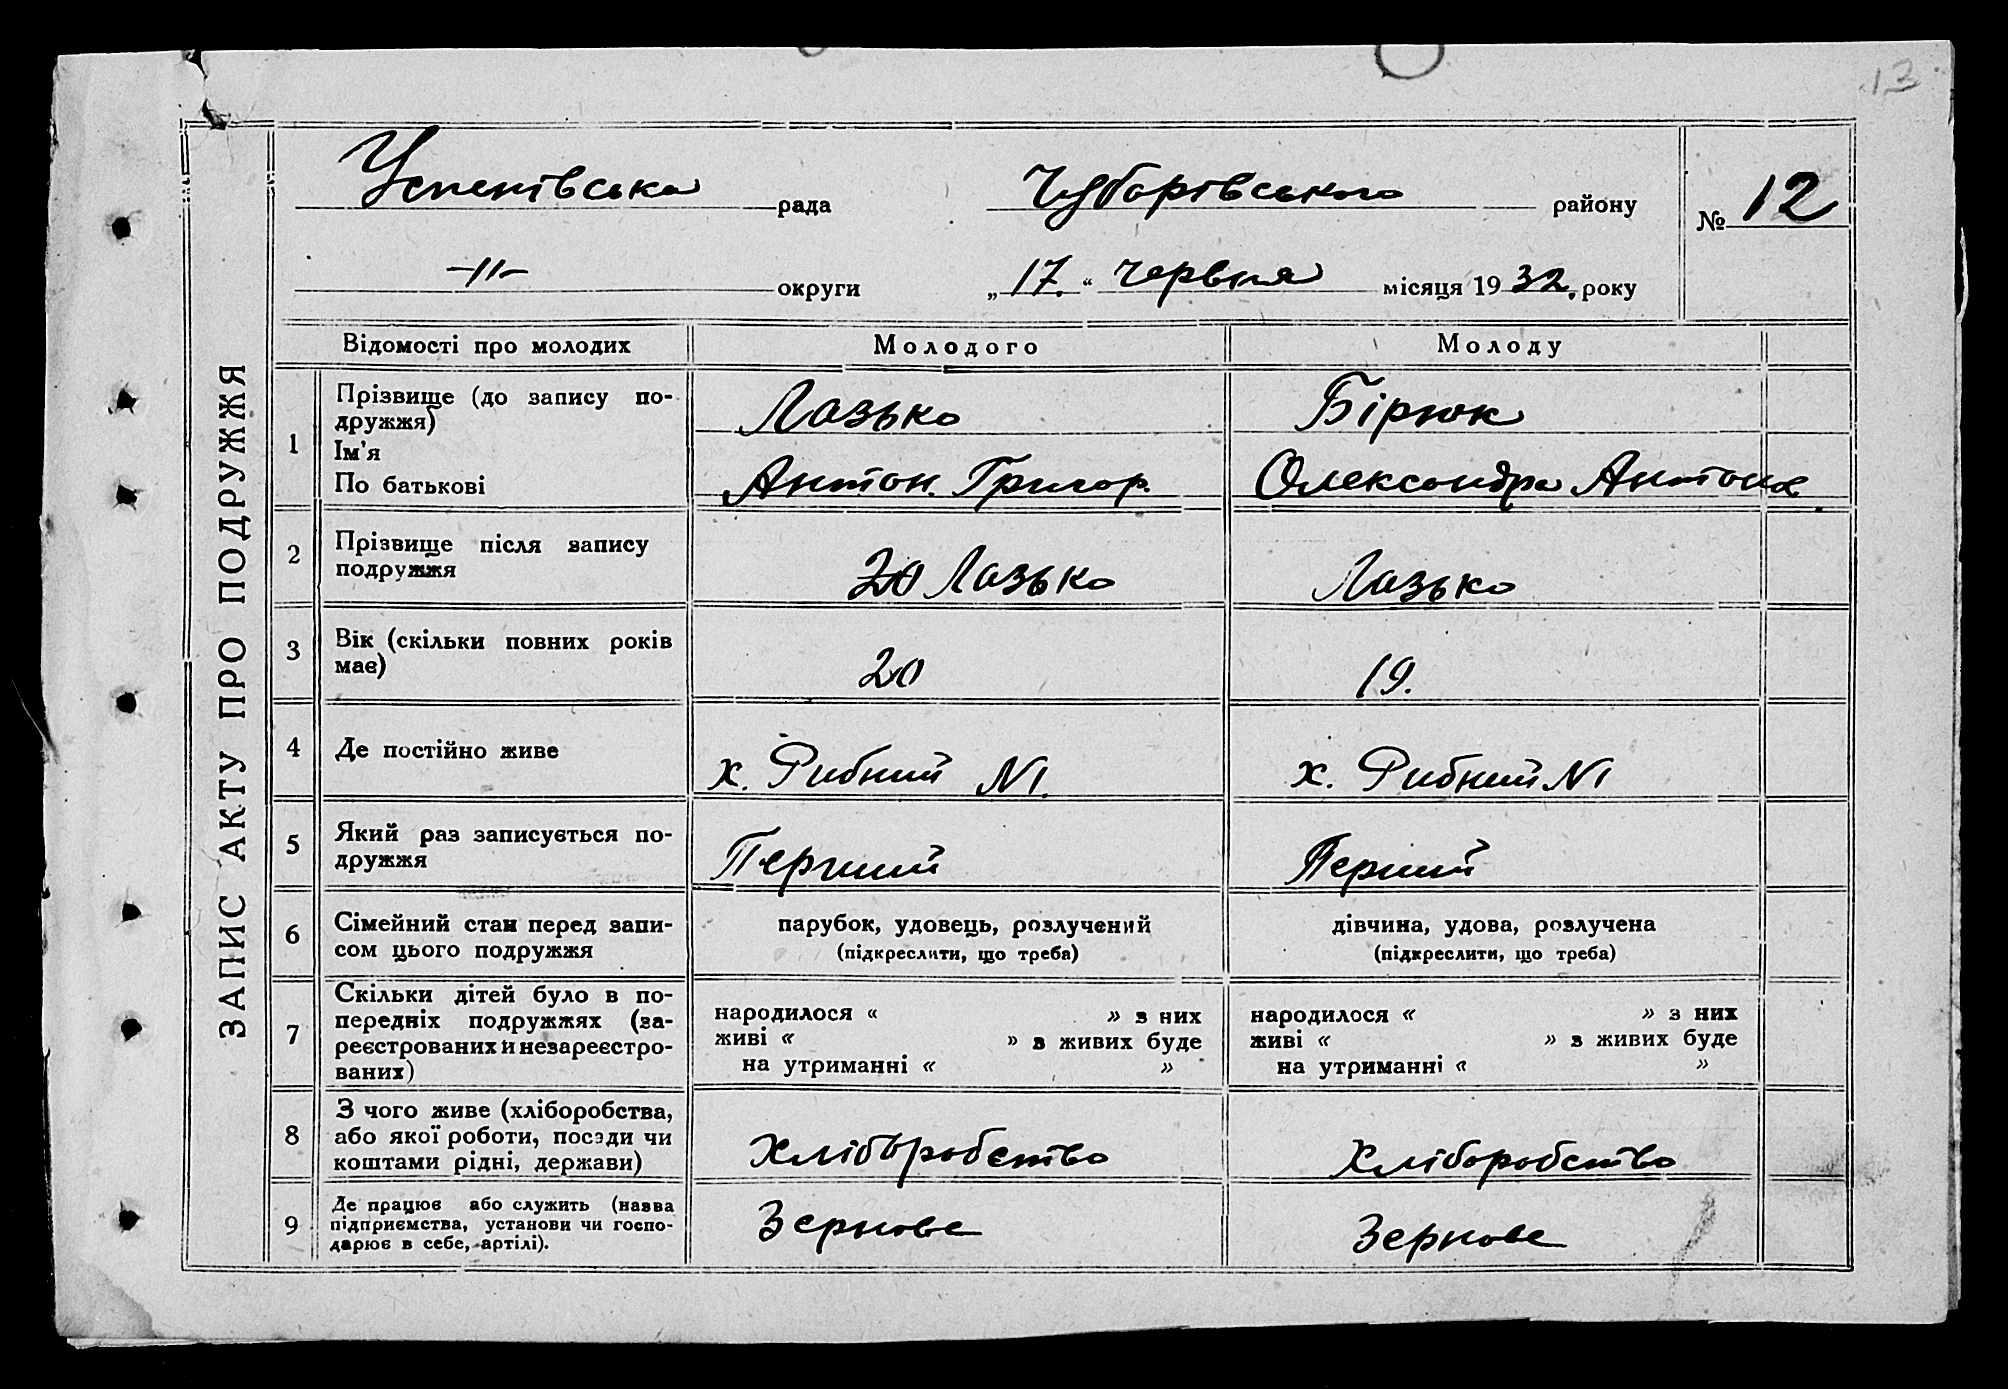 13
ЗАПИС АКТУ ПРО ПОДРУЖЖЯ
Успенівська рада Чубарівського району № 12
-"- округи „17." червня місяця 1932. року
Відомості про молодих Молодого Молоду
1 Прізвище (до запису по-
дружжя) Лазько Бірюк
Ім'я
По батькові Антон. Григор. Олександра Антонів
2 Прізвище після запису
подружжя 20 Лазько Лазько
3 Вік (скільки повних років
має) 20 19.
4 Де постійно живе х. Рибний N1. х. Рибний N1
5 Який раз записується по-
дружжя Перший Перший
6 Сімейний стан перед запи-
сом цього подружжя
парубок, удовець, розлучений
(підкреслити, що треба)
дівчина, удова, розлучена
(підкреслити, що треба)
7 Скільки дітей було в по-
передніх подружжях (за-
реєстрованих й незареєстро-
ваних)
народилося « » з них
живі « » з живих буде
на утриманні « »
народилося « » з них
живі « » з живих буде
на утриманні « »
8 З чого живе (хліборобства,
або якої роботи, посади чи
коштами рідні, держави) Хліборобство Хліборобство
9 Де працює або служить (назва
підприємства, установи чи госпо-
дарює в себе, артілі). Зернове Зернове